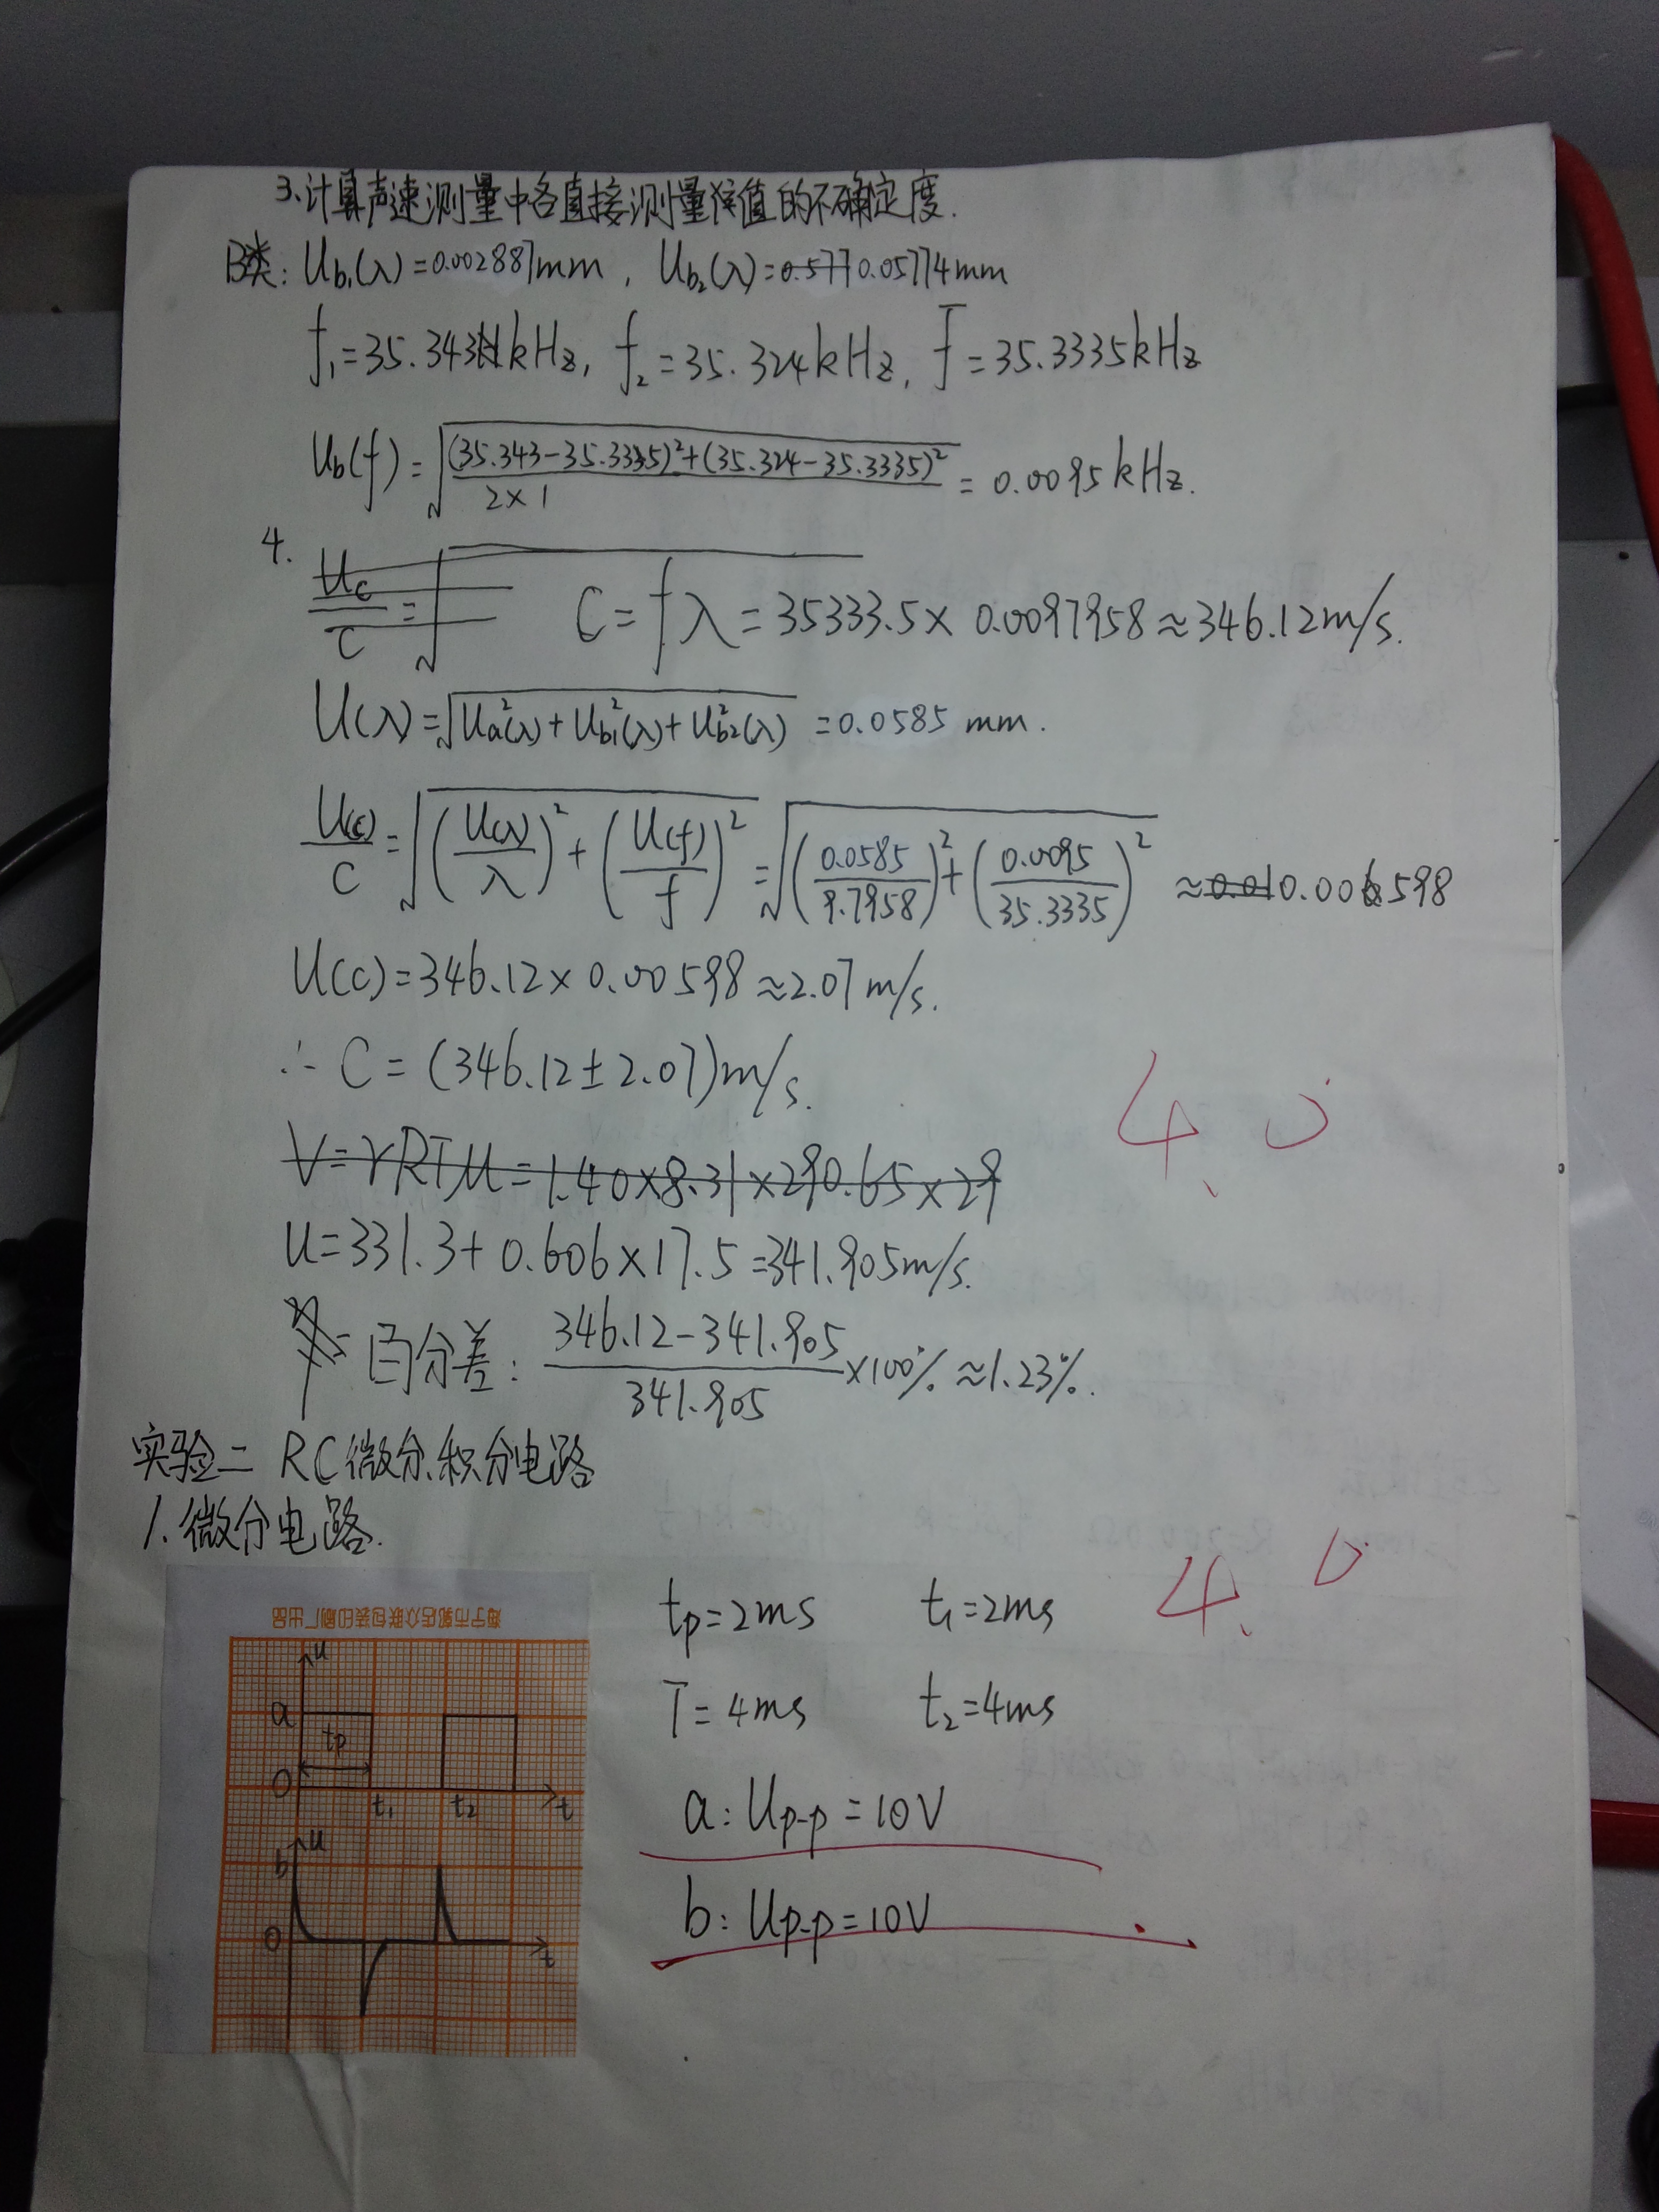 3.计算声速测量中各直接测量值的不确定度.
B类: Ub₁(λ)=0.002887mm, Ub₂(λ)=0.577 0.05774mm
f₁=35.343kHz, f₂=35.324kHz, f̄=35.3335kHz
Ub(f)=√((35.343-35.3335)²+(35.324-35.3335)²/2×1)=0.0095kHz.
4. Uc/C=√ C=fλ=35333.5×0.0097958≈346.12m/s.
U(λ)=√(Ua²(λ)+Ub₁²(λ)+Ub₂²(λ))=0.0585 mm.
U(c)/C=√((U(λ)/λ)²+(U(f)/f)²)=√((0.0585/9.7958)²+(0.0095/35.3335)²)≈0.01 0.00598
U(C)=346.12×0.00598≈2.07m/s.
∴ C=(346.12±2.07)m/s.
4.0
V=γRTμ=1.40×8.31×290.65×29
U=331.3+0.606×17.5=341.905m/s.
百分差: (346.12-341.905)/341.905×100%≈1.23%.
实验二 RC微分、积分电路
1.微分电路.
海宁市郭店众联包装印刷厂出品
tp=2ms t₁=2ms
4.0
T=4ms t₂=4ms
a: Up-p=10V
b: Up-p=10V
u
a
tp
0 t₁ t₂ t
u
b
0 t